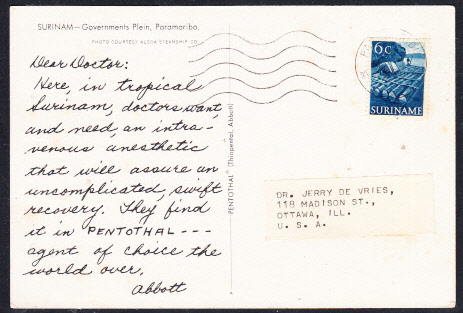 SURINAM—Governments Plein, Paramaribo.
PHOTO COURTESY ALCOA STEAMSHIP CO.
Dear Doctor:
Here, in tropical
Surinam, doctors want
and need, an intra-
venous anesthetic
that will assure an
uncomplicated, swift
recovery. They find
it in PENTOTHAL---
agent of choice the
world over.
Abbott
PENTOTHAL® (Thiopental, Abbott)
6c
SURINAME
DR. JERRY DE VRIES,
118 MADISON ST.,
OTTAWA, ILL.
U. S. A.